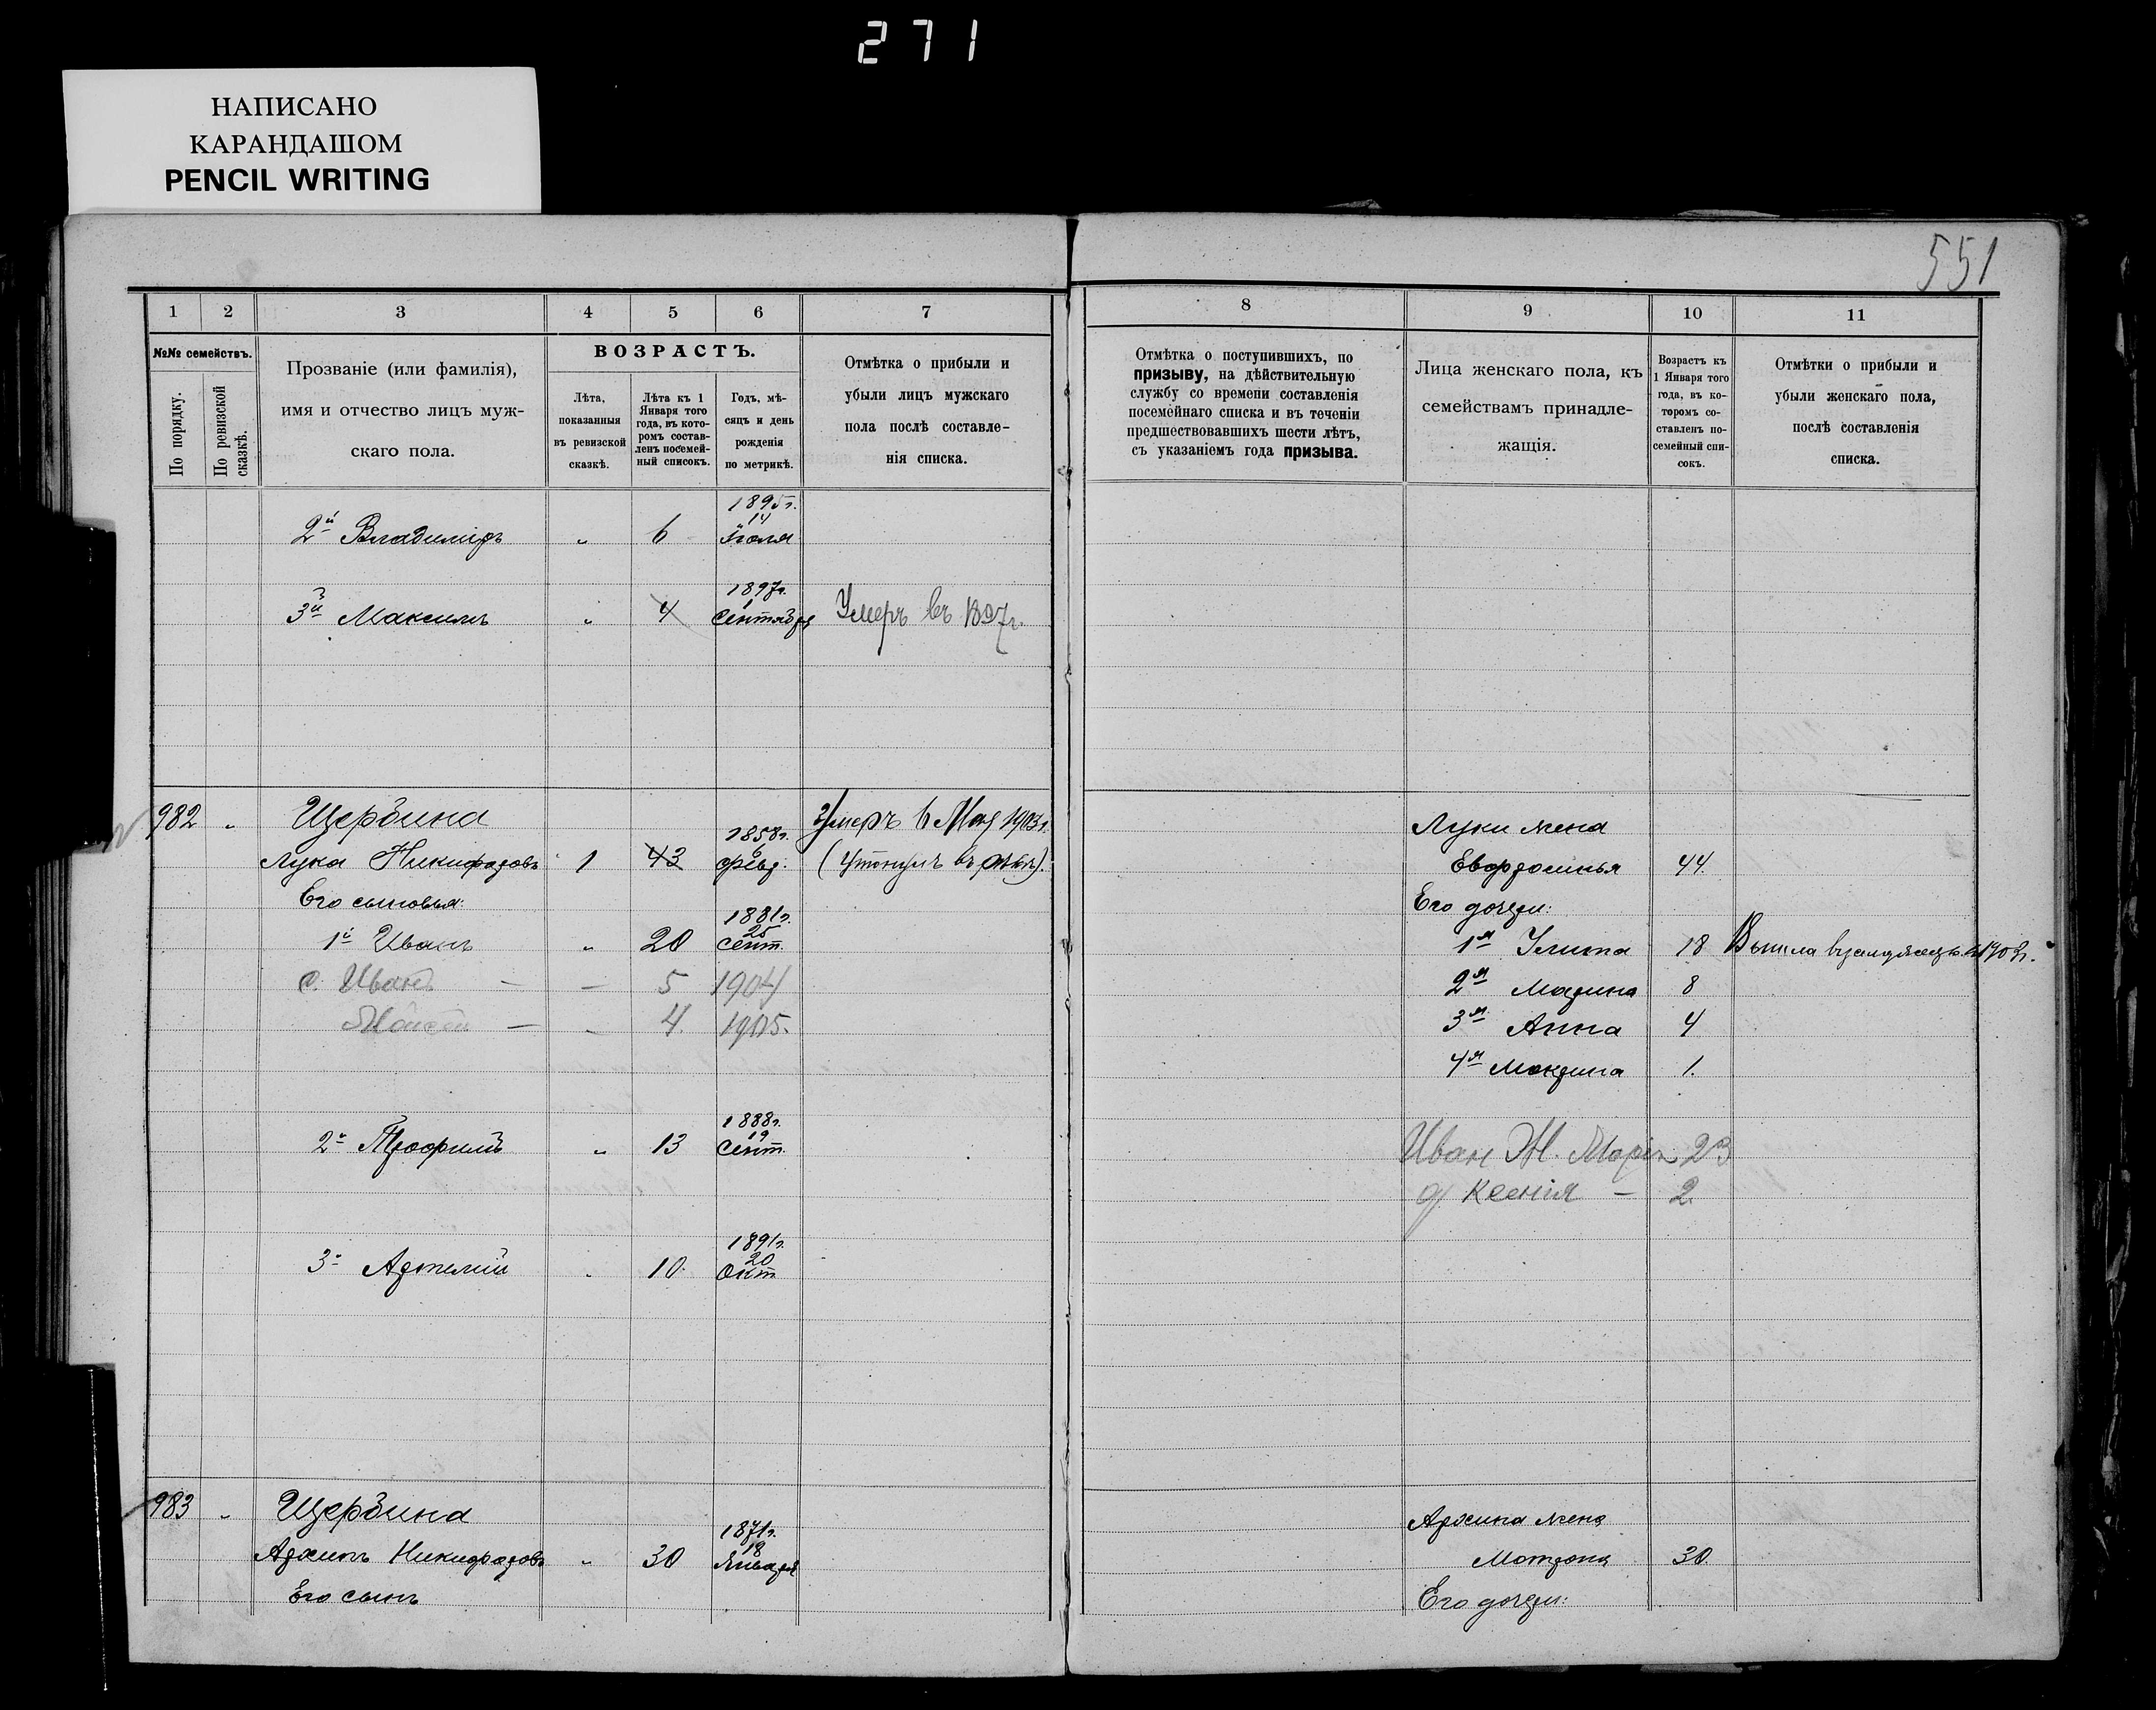 271
НАПИСАНО
КАРАНДАШОМ
PENCIL WRITING
551
1 2 3 4 5 6 7
№№ семействъ.
По порядку.
По ревизской сказкѣ.
Прозваніе (или фамилія),
имя и отчество лицъ муж-
скаго пола.
ВОЗРАСТЪ.
Лѣта,
показанныя
въ ревизской
сказкѣ.
Лѣта къ 1
Января того
года, въ кото-
ромъ состав-
ленъ посемей-
ный списокъ.
Годъ, мѣ-
сяцъ и день
рожденія
по метрикѣ.
Отмѣтка о прибыли и
убыли лицъ мужскаго
пола послѣ составле-
нія списка.
1895г.
14
2й Владиміръ " 6 Іюля
1897г.
1
3й Максимъ " 4 Сентября Умеръ въ 1897г.
982 " Щербина Умеръ 6 Мая 1903г.
1858г.
6
Лука Никифоровъ 1 43 февр. (Утонулъ въ
Его сыновья:
1881г.
25
1й Иванъ " 20 Сент.
с. Иванъ — — 5 1904
Моисей — — 4. 1905.
1888г.
19
2й Трофимъ " 13 Сент.
1891г.
20
3й Артемій " 10. Окт.
983 " Щербина
1871г.
18
Архипъ Никифоровъ " 30 Января
Его сынъ
8 9 10 11
Отмѣтка о поступившихъ, по
призыву, на дѣйствительную
службу со времени составленія
посемейнаго списка и въ теченіи
предшествовавшихъ шести лѣтъ,
съ указаніемъ года призыва.
Лица женскаго пола, къ
семействамъ принадле-
жащія.
Возрастъ къ
1 Января того
года, въ ко-
торомъ со-
ставленъ по-
семейный спи-
сокъ.
Отмѣтки о прибыли и
убыли женскаго пола,
послѣ составленія
списка.
Луки жена
Евфросинья 44.
Его дочери:
1я Улита 18 Вышла въ замужество въ 1903г.
2я Марина 8
3я Анна 4
4я Мокрина 1.
Иван Ж. Марія 23
д. Ксенія — 2.
Архипа жена
Матрона 30.
Его дочери: